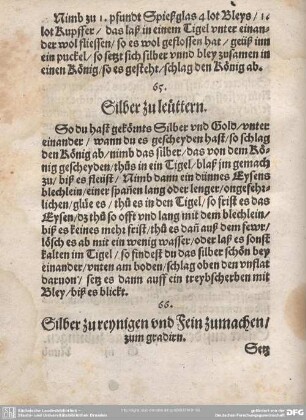 Nimb zu 1. pfundt Spießglas 4 lot Bleys/ 16
lot Kupffer/ das laß in einem Tigel vnter einan-
der wol fliessen/ so es wol geflossen hat/ geüß inn
ein puckel/ so setzt sich silber vnnd bley zusamen in
einen König/ so es gesteht/ schlag den König ab.
65.
Silber zu leüttern.
So du hast gekörnts Silber vnd Gold/ vnter
einander/ wann du es gescheyden hast/ so schlag
den König ab/ nimb das silber/ das von dem Kö-
nig gescheyden/ thüs in ein Tigel/ blaß jm gemach
zu/ biß es fleüst/ Nimb dann ein dünnes Eysens
blechlein/ einer spañen lang oder lenger/ ongefehr-
lichen/ glüe es/ thü es in den Tigel/ so frist es das
Eysen/ dz thü so offt vnd lang mit dem blechlein/
biß es keines mehr frist/ thü es dañ auß dem fewr/
lösch es ab mit ein wenig wasser/ oder laß es sonst
kalten im Tigel/ so findest du das silber schön bey
einander/ vnten am boden/ schlag oben den vnflat
daruon/ setz es dann auff ein treybscherben mit
Bley/ biß es blickt.
66.
Silber zu reynigen vnd Fein zumachen/
zum gradirn.
Setz